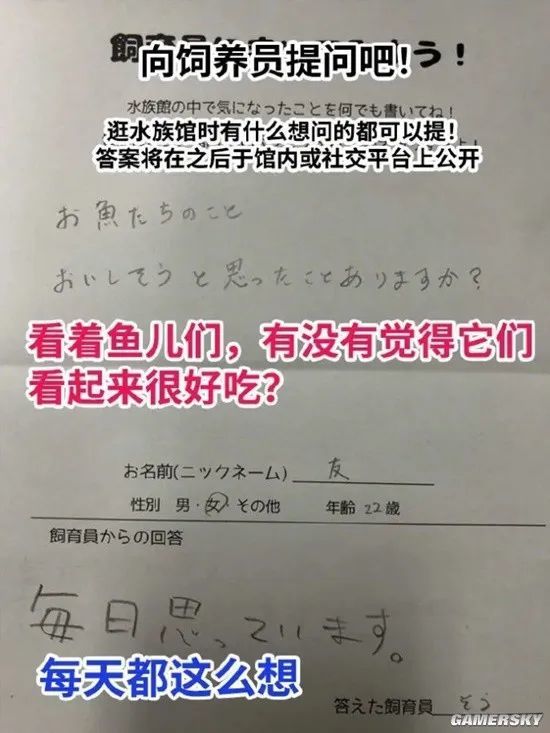 向饲养员提问吧!
う!
水族館の中で気になったことを何でも書いてね!
逛水族馆时有什么想问的都可以提!
答案将在之后于馆内或社交平台上公开
お魚たちのこと
おいしそうと思ったことありますか?
看着鱼儿们，有没有觉得它们
看起来很好吃?
お名前(ニックネーム) 友
性別 男・女・その他 年齢 22歳
飼育員からの回答
毎日思っています。
每天都这么想
答えた飼育員 そう
GAMERSKY